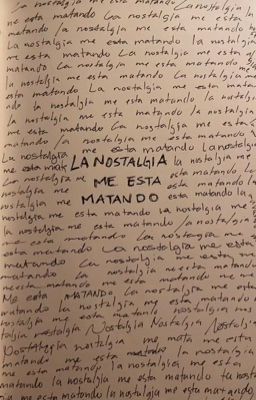 La nostalgia me esta matando La nostalgia
matando la nostalgia me esta matando
La nostalgia me esta matando la nostalgia
me esta matando La nostalgia me esta
matando La nostalgia me esta matando
la nostalgia me esta matando La nostalgia me
esta matando La nostalgia me esta matando
la nostalgia me esta matando la nostalgia
me esta matando La nostalgia me esta
matando la nostalgia me esta matando
La nostalgia me esta matando la nostalgia
me esta LA NOSTALGIA la nostalgia me
La nostalgia me ME ESTA esta matando La
nostalgia me MATANDO esta matando la
nostalgia me esta matando la nostalgia me
esta matando la nostalgia me esta matando
la nostalgia me esta matando La nostalgia
me esta matando La nostalgia me
esta matando La nostalgia me esta
matando La nostalgia me esta
matando la nostalgia me esta matando
me esta matando la nostalgia me
Me esta MATANDO la nostalgia me esta
matando la nostalgia me esta matando
nostalgia me esta matando nostalgia me
nostalgia Nostalgia Nostalgia Nostalgia
Nostalgia nostalgia me mata me esta
matando me esta matando la nostalgia
me esta matando la nostalgia me esta
matando la nostalgia me esta matando la nostalgia
me esta matando la nostalgia me esta matando